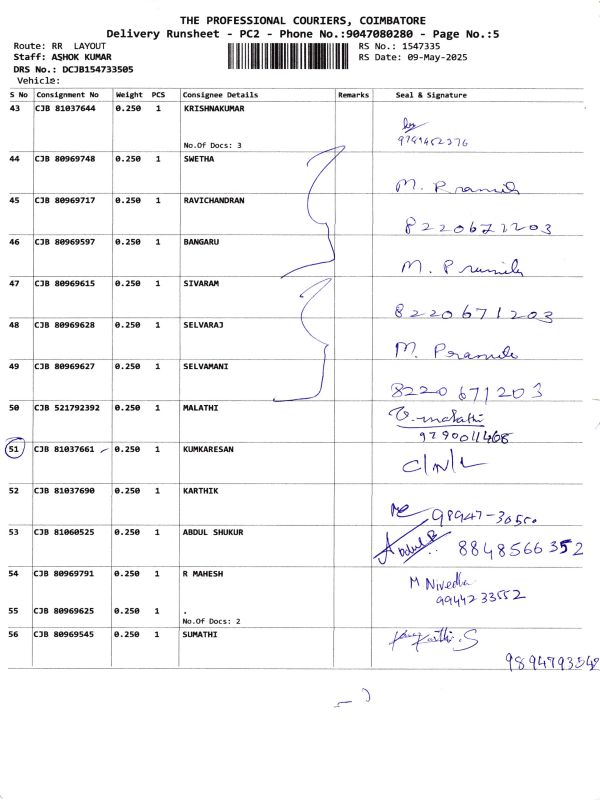 THE PROFESSIONAL COURIERS, COIMBATORE
Delivery Runsheet - PC2 - Phone No.:9047080280 - Page No.:5
Route: RR LAYOUT RS No.: 1547335
Staff: ASHOK KUMAR RS Date: 09-May-2025
DRS No.: DCJB154733505
Vehicle:
S No Consignment No Weight PCS Consignee Details Remarks Seal & Signature
43 CJB 81037644 0.250 1 KRISHNAKUMAR
No.Of Docs: 3
44 CJB 80969748 0.250 1 SWETHA
M. Pramila
45 CJB 80969717 0.250 1 RAVICHANDRAN
8220671203
46 CJB 80969597 0.250 1 BANGARU
M. Pramila
47 CJB 80969615 0.250 1 SIVARAM
8220671203
48 CJB 80969628 0.250 1 SELVARAJ
M. Pramila
49 CJB 80969627 0.250 1 SELVAMANI
8220671203
50 CJB 521792392 0.250 1 MALATHI
V. malathi
9790011468
51 CJB 81037661 0.250 1 KUMKARESAN
C/N/L
52 CJB 81037690 0.250 1 KARTHIK
53 CJB 81060525 0.250 1 ABDUL SHUKUR
Abdul 8848566352
54 CJB 80969791 0.250 1 R MAHESH
M Nivedha
9944233552
55 CJB 80969625 0.250 1 .
No.Of Docs: 2
56 CJB 80969545 0.250 1 SUMATHI
9894793542